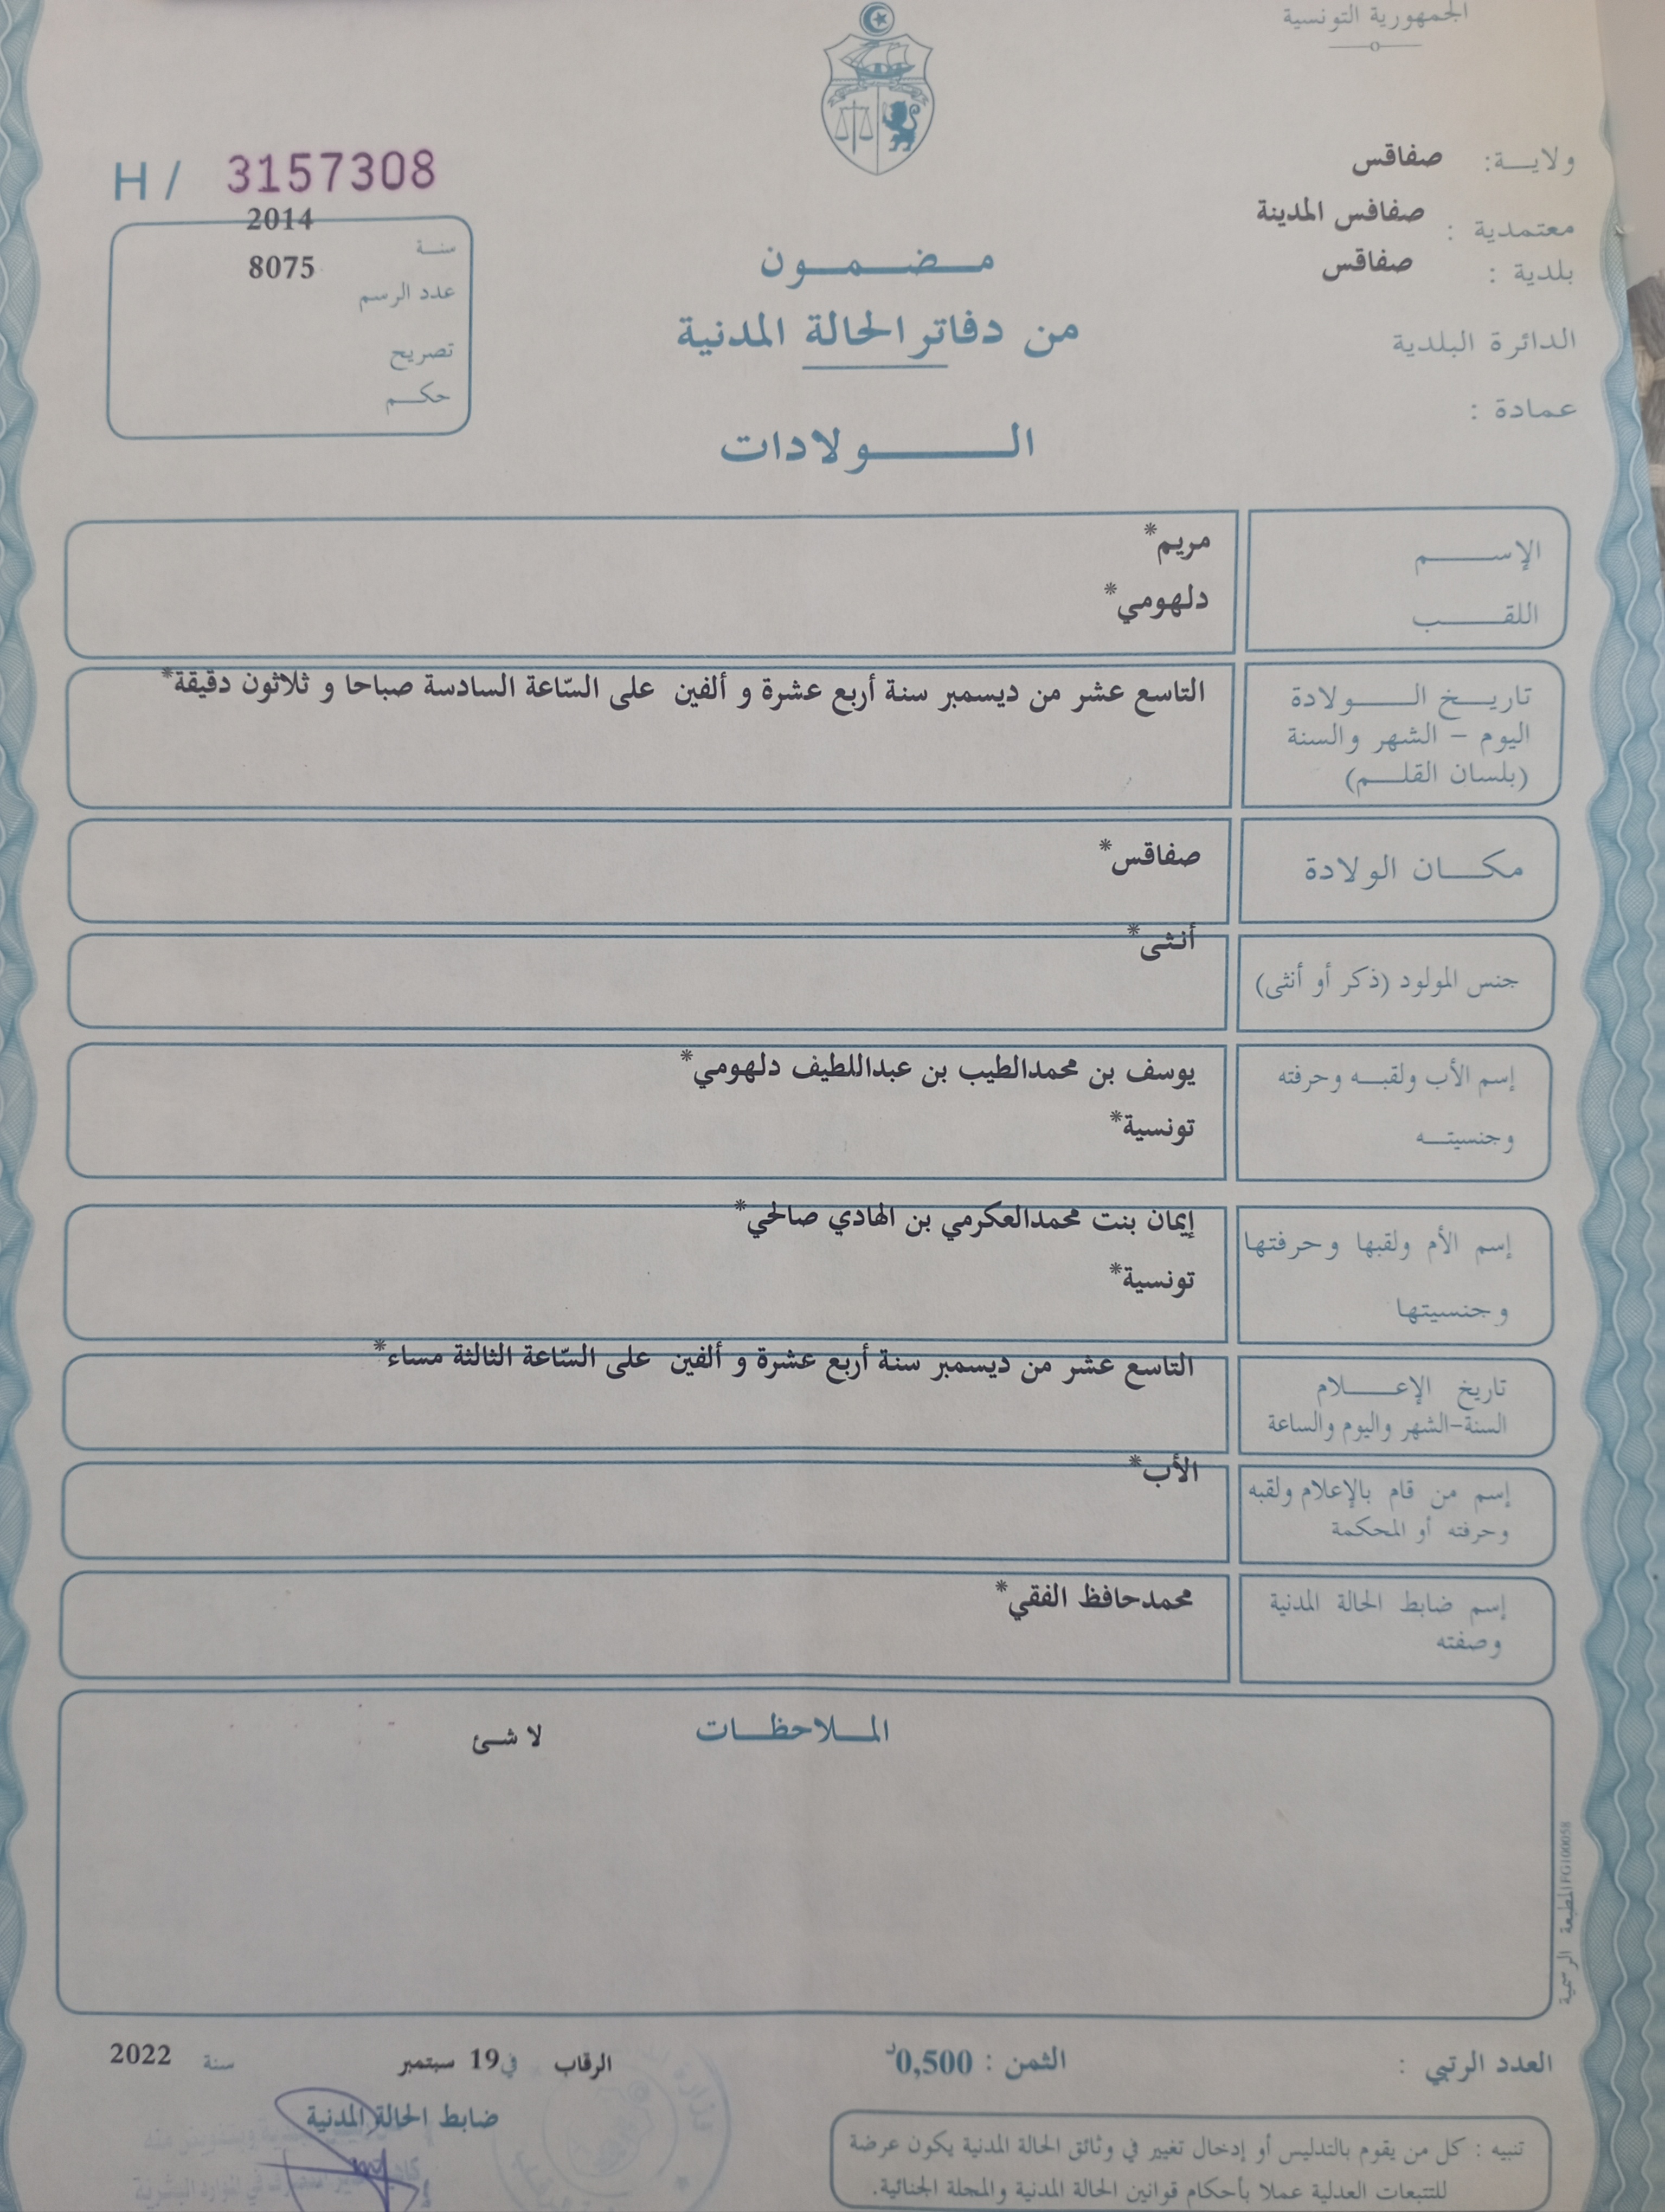 الجمهورية التونسية
ولايـــة: صفاقس
معتمدية : صفافس المدينة
بلدية : صفاقس
الدائرة البلدية
عمادة :
H / 3157308
سنـة 2014
عدد الرسم 8075
تصريح
حكــم
مـــضـــمـــون
من دفاتر الحالة المدنية
الـــــولادات
الإســــــم مريم*
اللقـــــب دلهومي*
تاريـــخ الـــــولادة التاسع عشر من ديسمبر سنة أربع عشرة و ألفين على السّاعة السادسة صباحا و ثلاثون دقيقة*
اليوم – الشهر والسنة
(بلسان القلـــم)
مكـــان الولادة صفاقس*
جنس المولود (ذكر أو أنثى) أنثى*
إسم الأب ولقبـــه وحرفته يوسف بن محمدالطيب بن عبداللطيف دلهومي*
وجنسيتـــه تونسية*
إسم الأم ولقبها وحرفتها إيمان بنت محمدالعكرمي بن الهادي صالحي*
وجنسيتها تونسية*
تاريخ الإعـــــلام التاسع عشر من ديسمبر سنة أربع عشرة و ألفين على السّاعة الثالثة مساء*
السنة-الشهر واليوم والساعة
إسم من قام بالإعلام ولقبه الأب*
وحرفته أو المحكمة
إسم ضابط الحالة المدنية محمدحافظ الفقي*
وصفته
المـــلاحظـــات لا شئ
المطبعة الرسمية FG100058
العدد الرتبي :
الثمن : 0,500د
الرقاب في 19 سبتمبر سنة 2022
ضابط الحالة المدنية
تنبيه : كل من يقوم بالتدليس أو إدخال تغيير في وثائق الحالة المدنية يكون عرضة
للتتبعات العدلية عملا بأحكام قوانين الحالة المدنية والمجلة الجنائية.